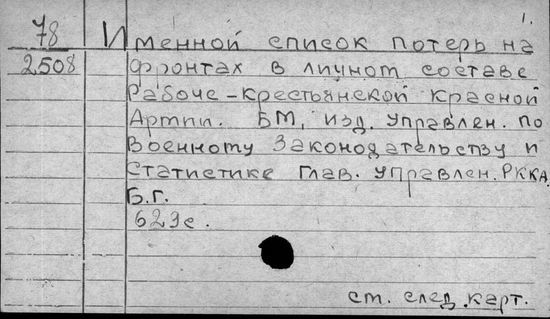 1.
78 Именной список потерь на
2508 фронтах в личном составе
Рабоче-крестьянской красной
Армии. БМ, изд. Управлен. по
Военному Законодательству и
Статистике Глав. Управлен. РККА,
Б.г.
629с.
см. след. карт.